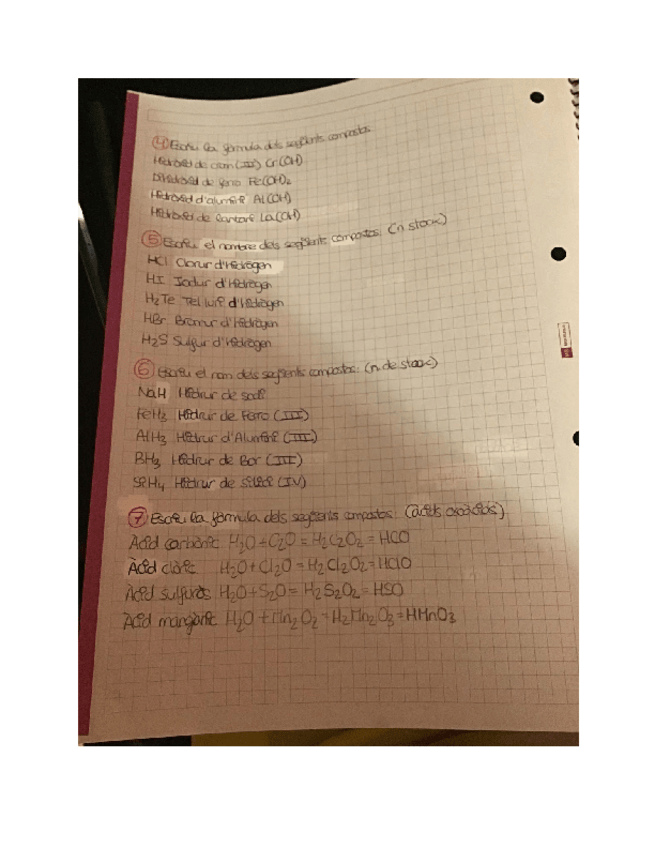 ④ Escriu la fórmula dels següents compostos
Hidròxid de crom (III) Cr(OH)
Dihidròxid de ferro Fe(OH)₂
Hidròxid d'alumini Al(OH)
Hidròxid de lantani La(OH)
⑤ Escriu el nombre dels següents compostos: (n stock)
HCl Clorur d'Hidrògen
HI Iodur d'Hidrògen
H₂Te Tel·lurif d'Hidrògen
HBr Bromur d'Hidrògen
H₂S Sulfur d'Hidrògen
⑥ Escriu el nom dels següents compostos: (n. de stock)
NaH Hidrur de sodi
FeH₃ Hidrur de Ferro (III)
AlH₃ Hidrur d'Alumini (III)
BH₃ Hidrur de Bor (III)
SiH₄ Hidrur de silici (IV)
⑦ Escriu la fórmula dels següents compostos: (àcids oxoàcids)
Àcid carbònic H₂O + C₂O = H₂C₂O₂ = HCO
Àcid clòric H₂O + Cl₂O = H₂Cl₂O₂ = HClO
Àcid sulfurós H₂O + S₂O = H₂S₂O₂ = HSO
Àcid mangànic H₂O + Mn₂O₂ = H₂Mn₂O₃ = HMnO₃